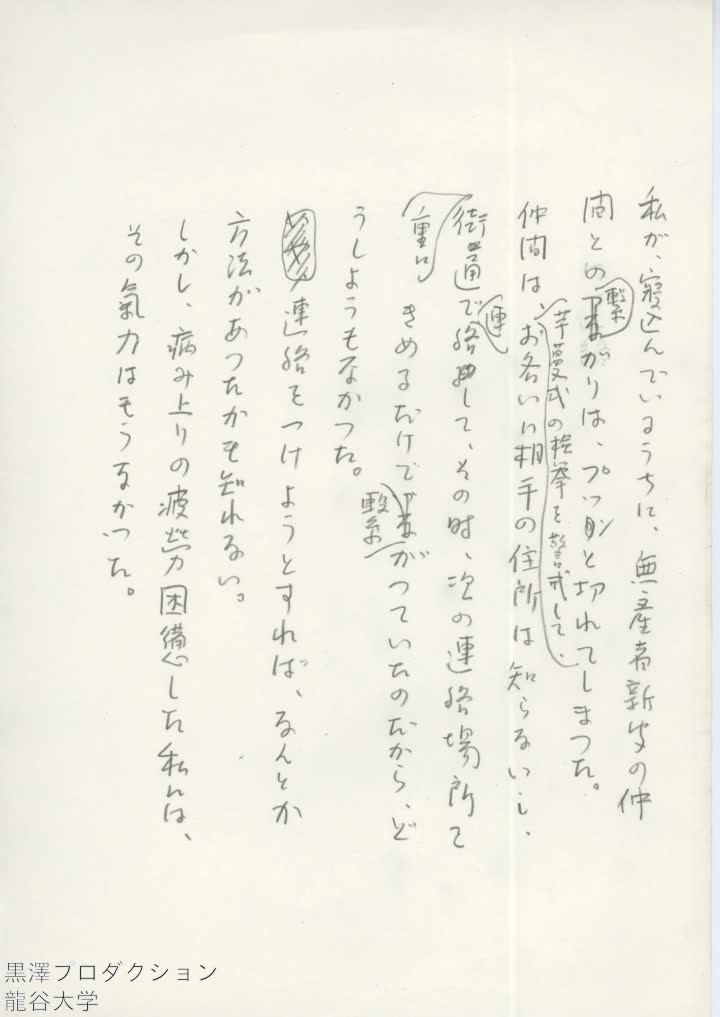 私が、寝込んでいるうちに、無産者新聞の仲
間との繋がりは、プッツンと切れてしまった。
仲間は、芋蔓式の検挙を警戒して、お各いに相手の住所は知らないし、
街頭で連絡して、その時、次の連絡場所と
きめるだけで繋がっていたのだから、ど
うしようもなかった。
連絡をつけようとすれば、なんとか
方法があったかも知れない。
しかし、病み上りの疲労困憊した私には、
その氣力はもうなかった。
黒澤プロダクション
龍谷大学